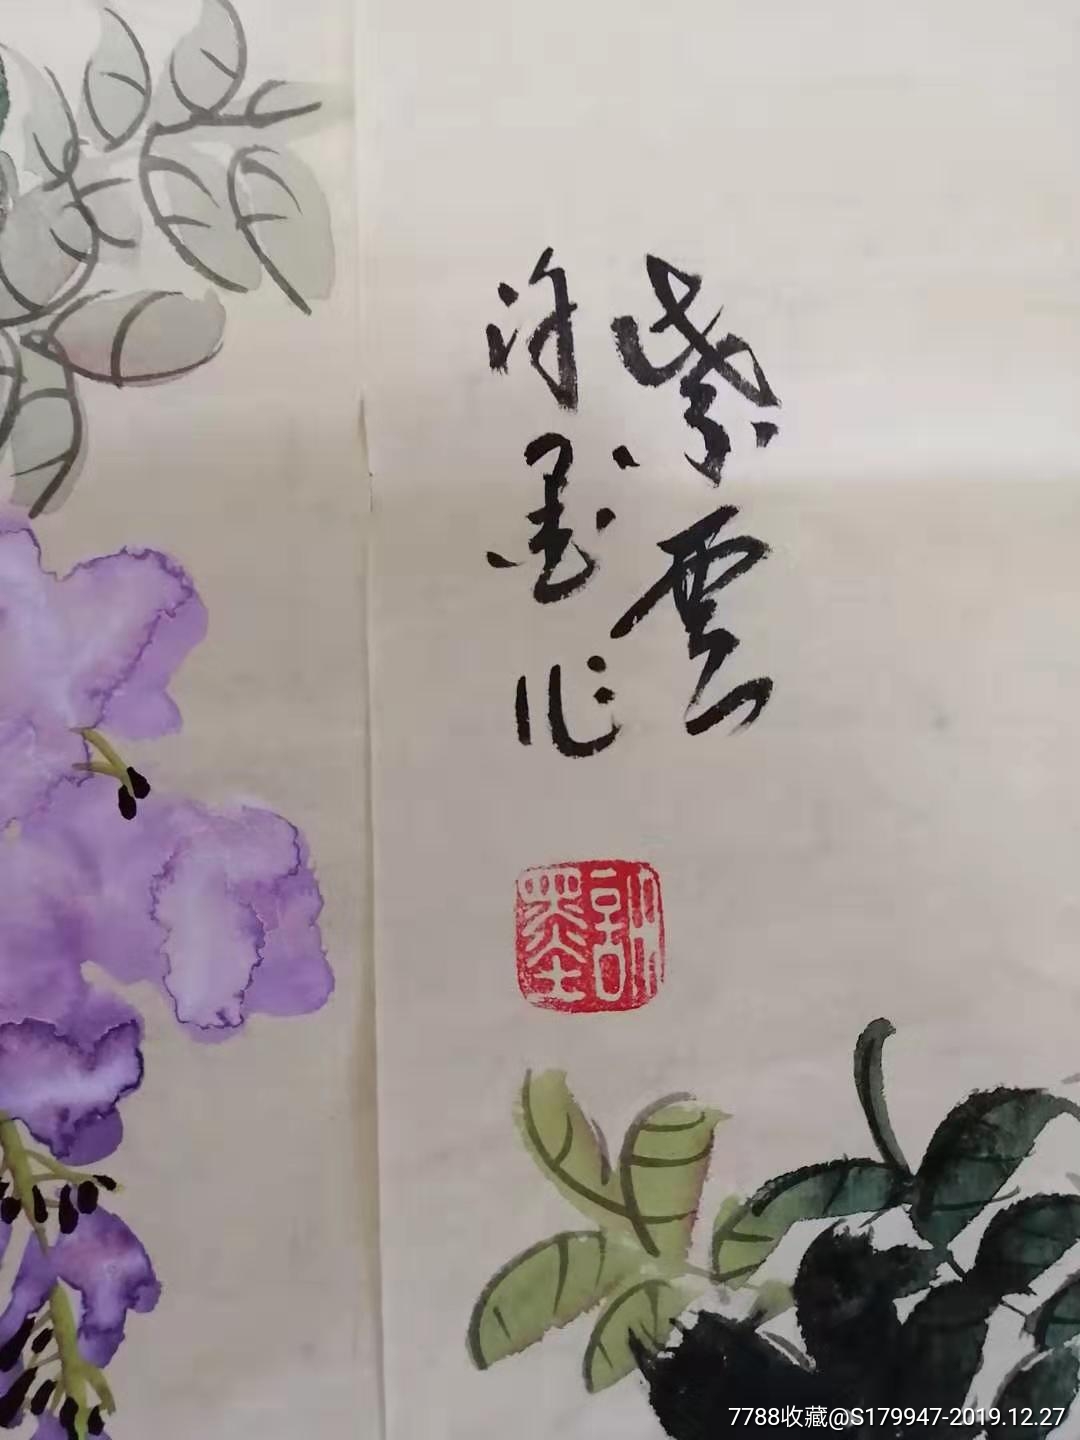 紫雲
许墨作
許墨
7788收藏@S179947-2019.12.27